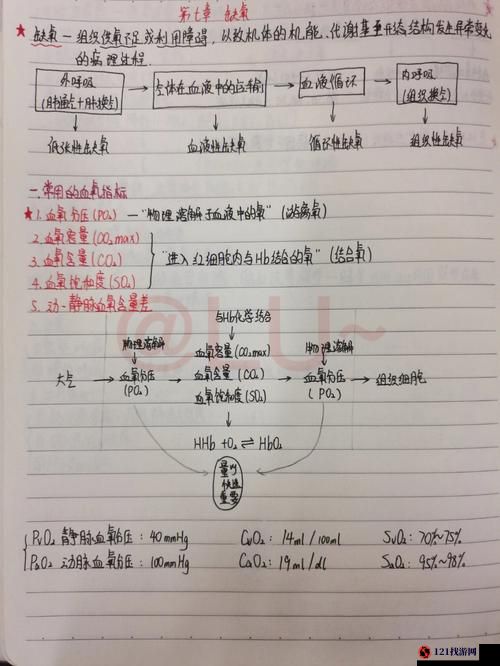 第七章 缺氧
★缺氧—组织供氧不足或利用障碍，以致机体的机能、代谢甚至形态结构发生异常变化
的病理过程.
外呼吸
(肺通气+肺换气)
气体在血液中的运输
血液循环
内呼吸
(组织换气)
低张性缺氧
血液性缺氧
循环性缺氧
组织性缺氧
一.常用的血氧指标
★1.血氧分压(PO₂)—"物理溶解于血液中的氧"(游离氧)
2.血氧容量(CO₂max)
3.血氧含量(CO₂)
4.血氧饱和度(SO₂)
"进入红细胞内与Hb结合的氧"(结合氧)
5.动-静脉血氧含量差
@LU~
与Hb化学结合
物理溶解
血氧容量(CO₂max)
物理溶解
大气
血氧分压
(PO₂)
血氧含量(CO₂)
血氧饱和度(SO₂)
血氧分压
(PO₂)
组织细胞
HHb+O₂⇌HbO₂
量少
快速
重要
PvO₂ 静脉血氧分压：40mmHg CvO₂：14ml/100ml SvO₂：70%~75%
PaO₂ 动脉血氧分压：100mmHg CaO₂：19ml/dl SaO₂：95%~98%
121找游网